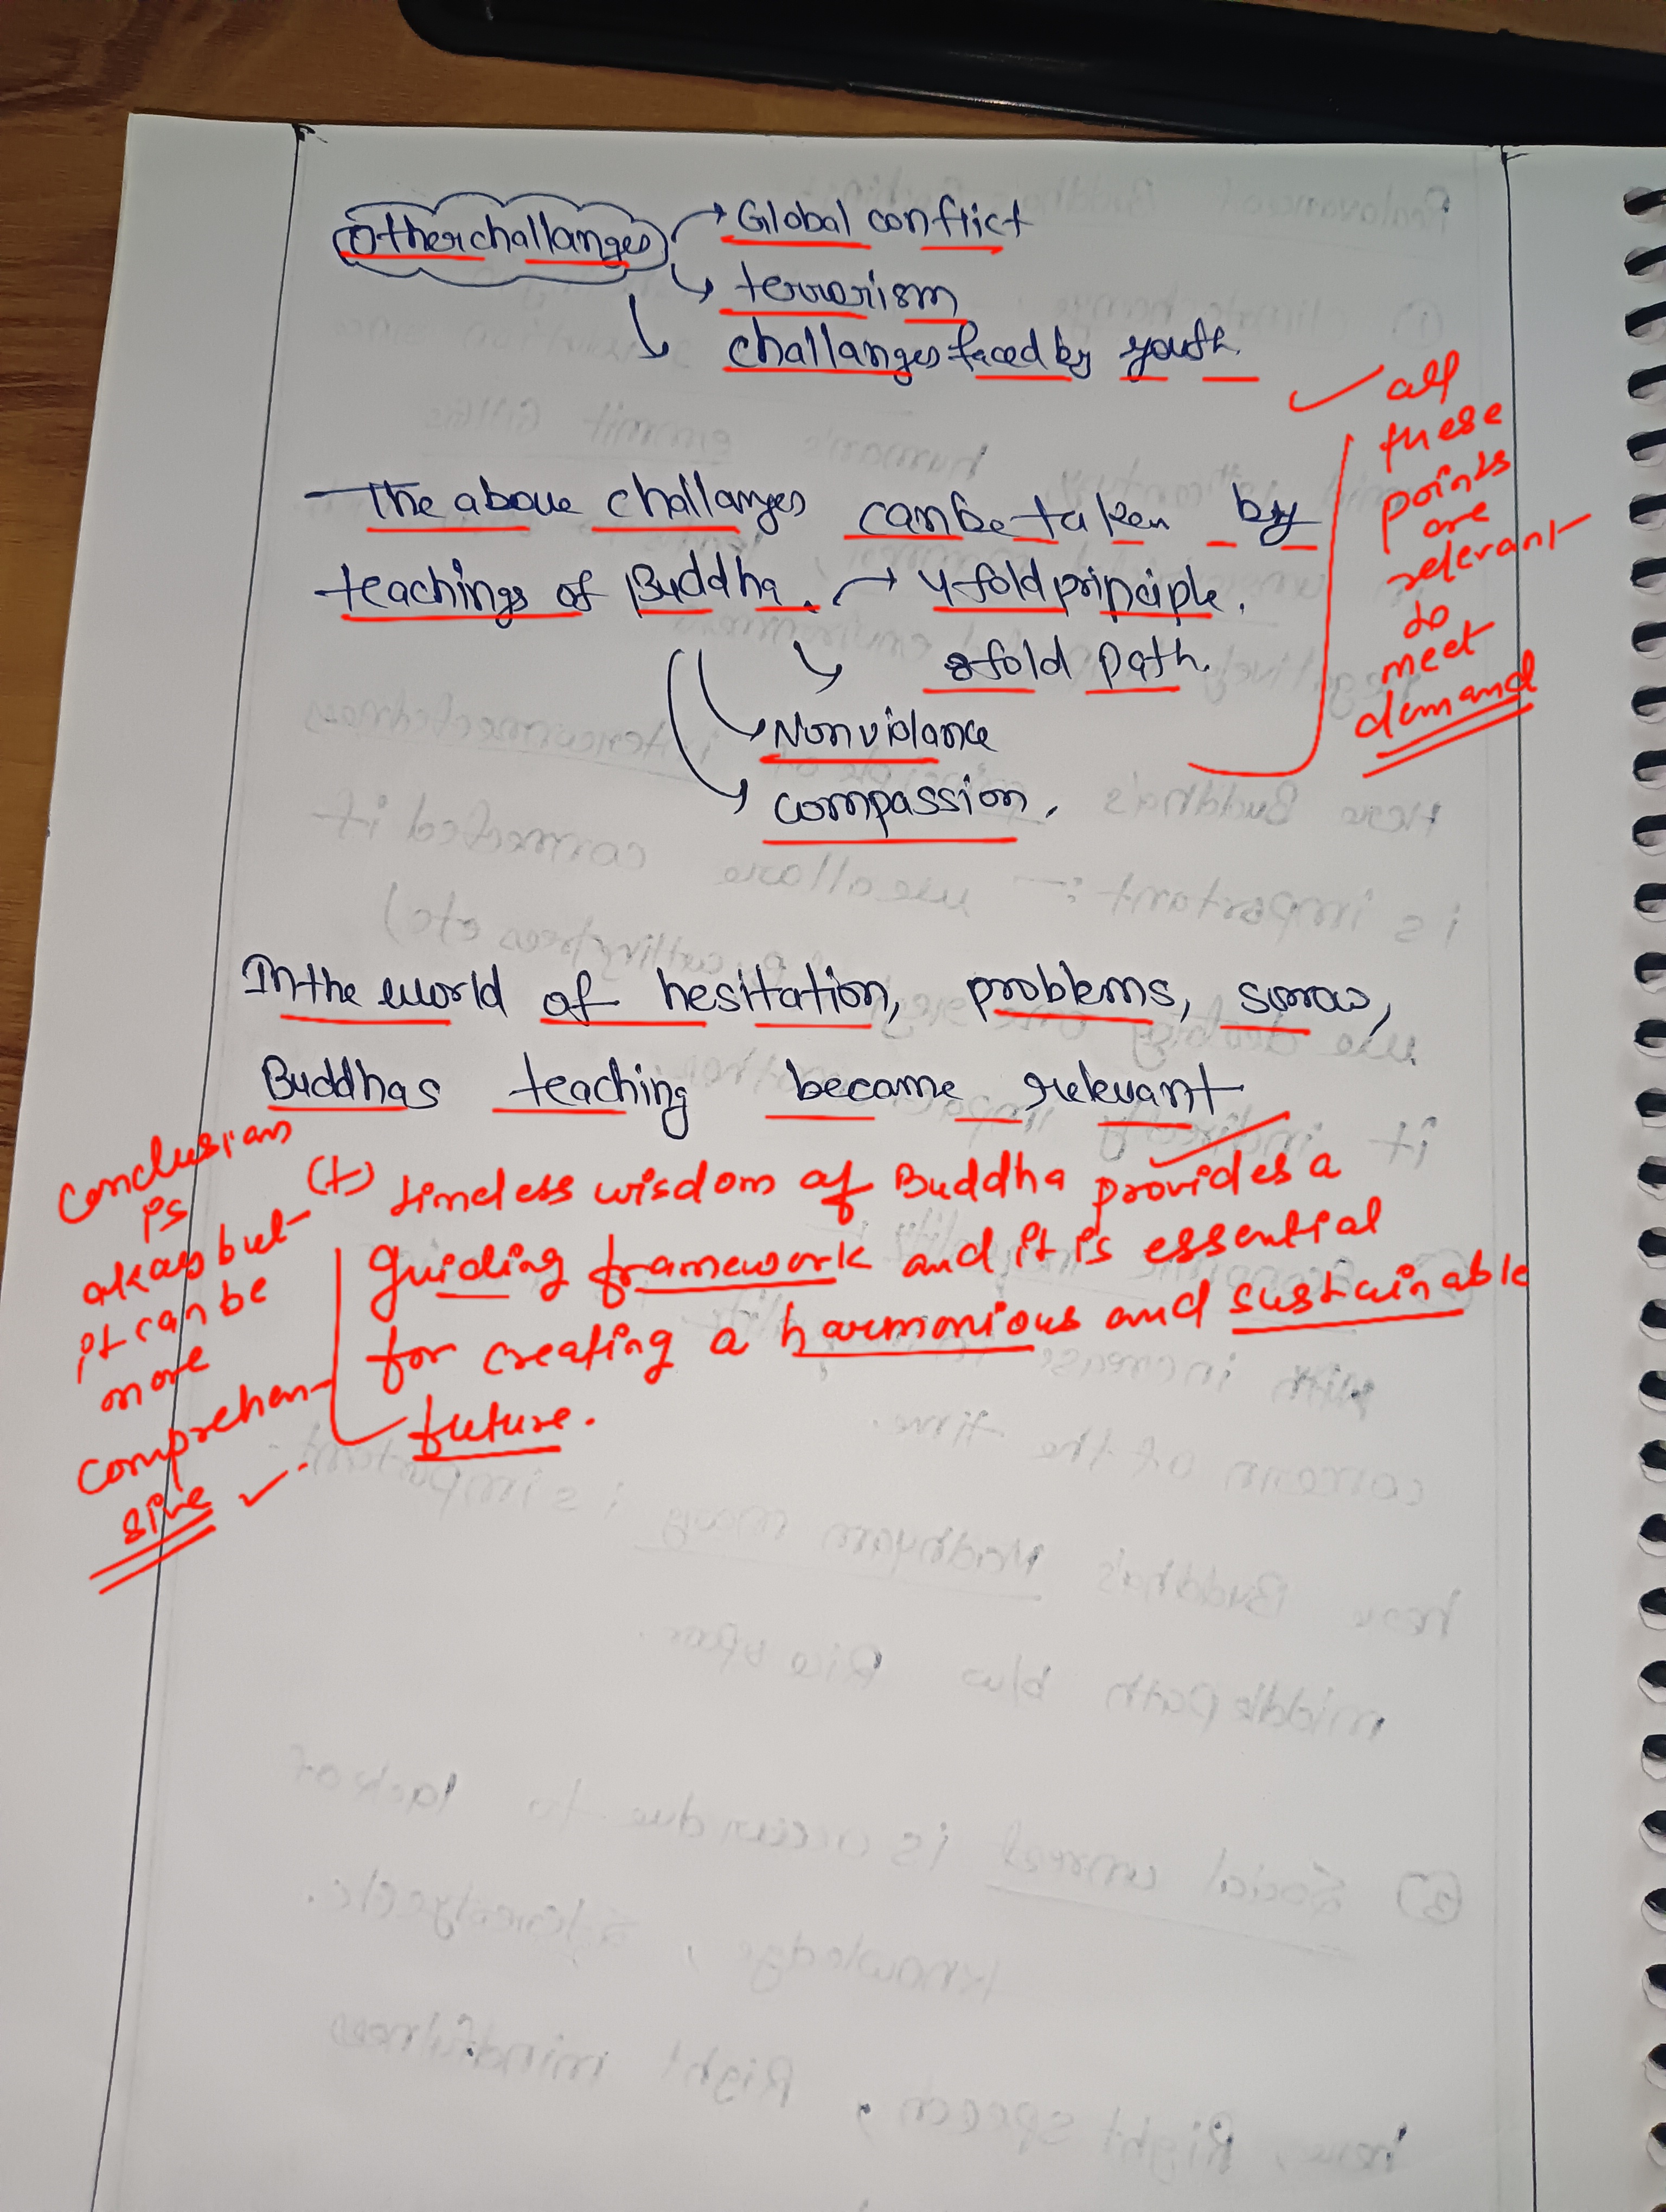 Other challanges
Global conflict
terrorism
challanges faced by youth.
all
these
points
are
relevant
to
meet
demand
The above challanges can be taken by
teachings of Buddha. → 4 fold principle.
8 fold path.
Nonviolance
compassion.
In the world of hesitation, problems, sorrow,
Buddhas teaching became relevant
Conclusion
is
okay but
it can be
more
comprehen-
sive
(+) timeless wisdom of Buddha provides a
guiding framework and it is essential
for creating a harmonious and sustainable
future.